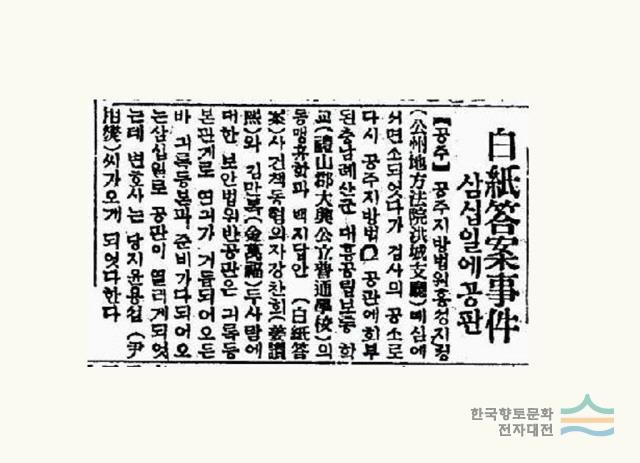 白紙答案事件
삼십일에공판
【공주】 공주지방법원홍성지령
(公州地方法院洪城支廳)예심에
서면소되엿다가 검사의 공소로
다시 공주지방법 공판에회부
된충남례산군 대흥공립보통 학
교(禮山郡大興公立普通學校)의
동맹휴학과 백지답안 (白紙答
案)사건책동혐의자강찬희(姜讚
熙)와 김만복(金萬福)두사람에
대한 보안법위반공판은 긔록등
본관계로 연긔가 거듭되어오든
바 긔록등본과 준비가다되어오
는삼십일로 공판이 열리게되엿
는데 변호사는 당지윤용섭 (尹
用燮)씨가오게 되엿다한다
한국향토문화
전자대전